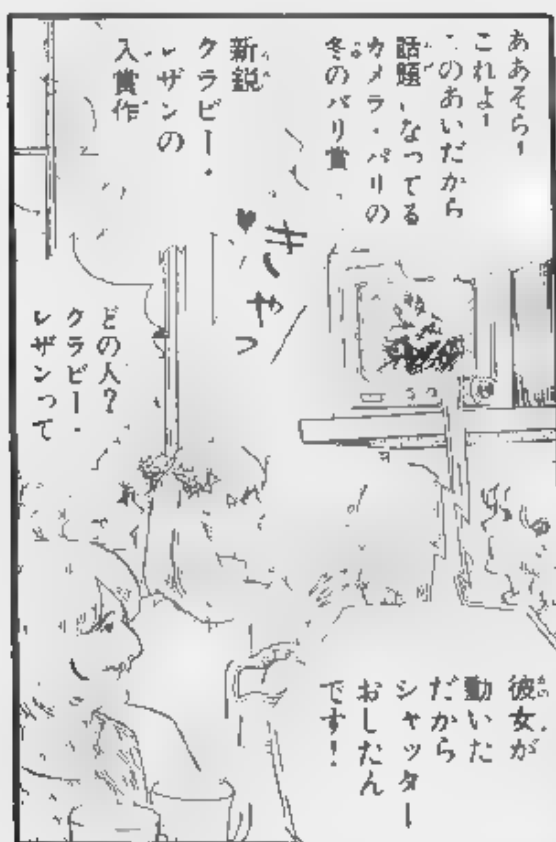 ああそら!
これよ!
このあいだから
話題になってる
カメラ・パリの
冬のパリ賞
新鋭
クラピー・
レザンの
入賞作
きゃっ♥
どの人?
クラピー・
レザンって
彼女が
動いた
だから
シャッター
おしたん
です!